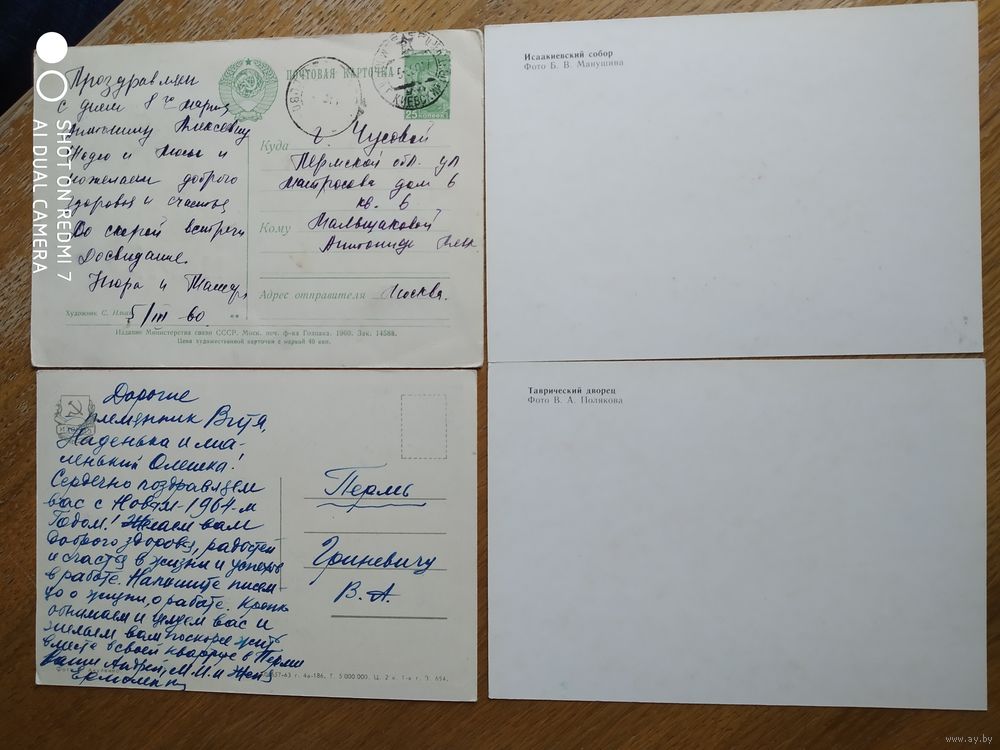 Проздравляем
с днем 8го марта
Антонину Алексевну
Надю и Люсю и
пожелаем доброго
здоровья и счастья
До скорой встречи
Досвидание.
Нюра и Тамара
5/III 60
ПОЧТОВАЯ КАРТОЧКА
25 КОПЕЕК
Куда
г. Чусовой
Пермской обл. ул
матросова дом 6
кв. 6
Кому
Мальщаковой
Антониде Алек
Адрес отправителя Москва.
Художник С.
Издание Министерства связи СССР. Моск. печ. ф-ка Гознака. 1960. Зак. 14588.
Цена художественной карточки с маркой 40 коп.
Исаакиевский собор
Фото Б. В. Манушина
Дорогие
племенник Витя,
Наденька и ма-
ленький Олешка!
Сердечно поздравляем
вас с Новым-1964-м
Годом! Желаем вам
доброго здоровья, радостей
и счастья в жизни и успехов
в работе. Напишите письм-
цо о жизни, о работе. Крепко
обнимаем и целуем вас и
желаем вам поскорее жить
вместе в своей квартире в Перми
Ваши Андрей, М.М. и Женя
Ермоленки
57-63 г. 4а-186, Т. 5 000 000. Ц. 2 к. 1-я г. З. 654.
Пермь
Гриневичу
В. А.
Таврический дворец
Фото В. А. Полякова
SHOT ON REDMI 7
AI DUAL CAMERA
www.ay.by